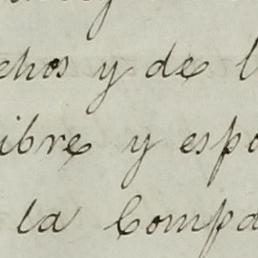 chos y de l
ibre y espo
la Compa